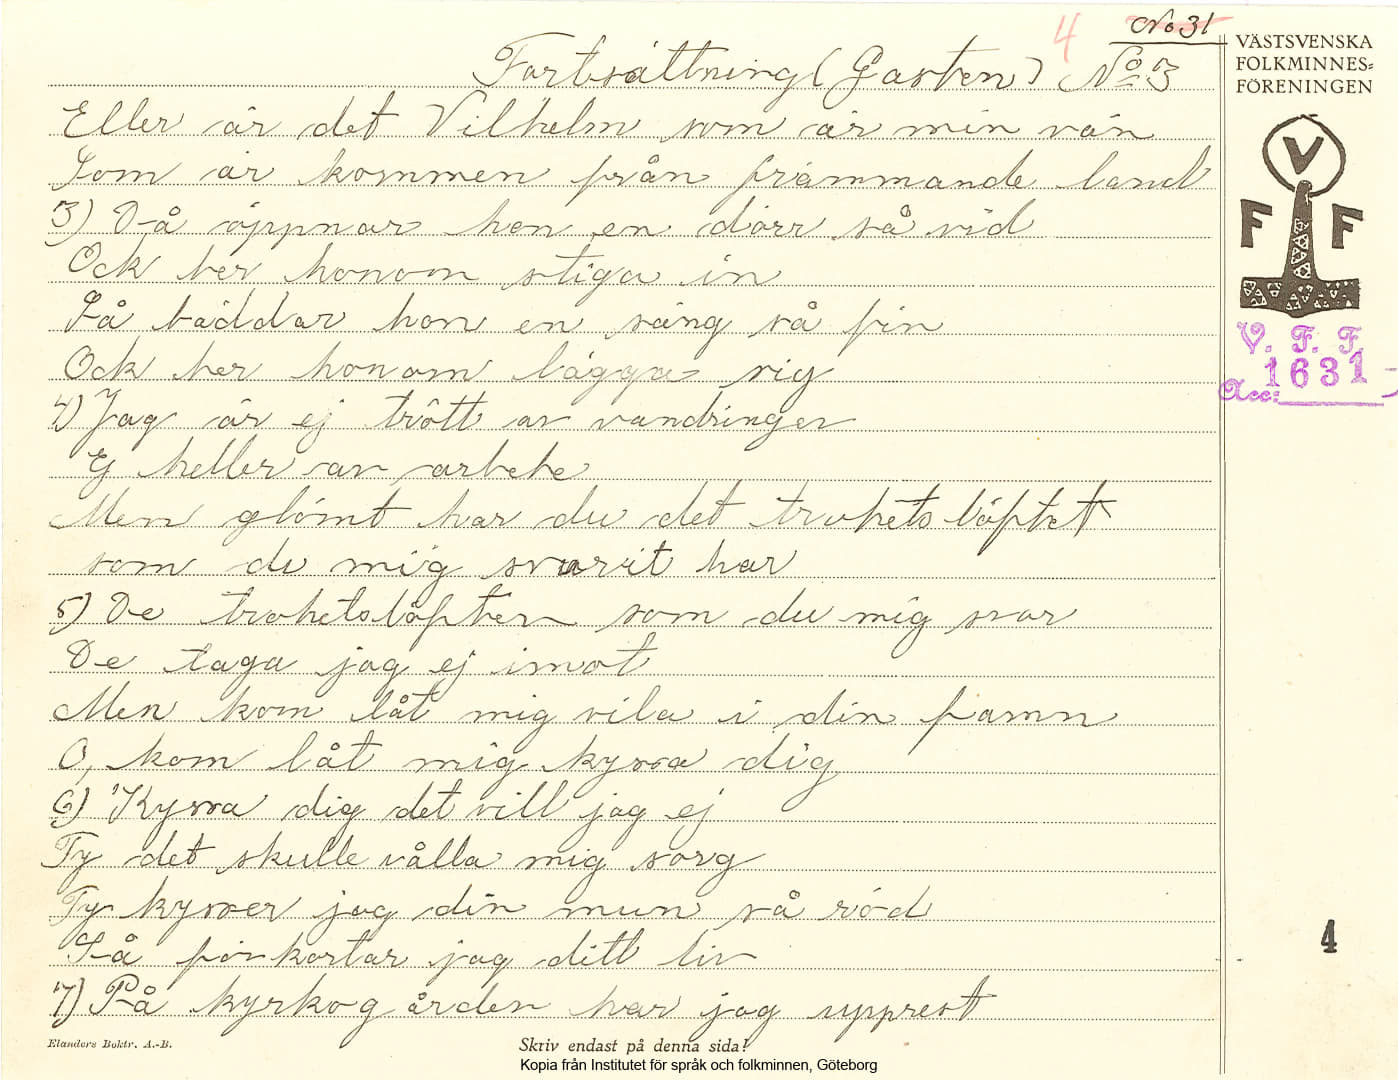 4 No 31
Fortsättning (Gasten) No 3
Eller är det Vilhelm som är min vän
Som är kommen från främmande land
3) Då öppnar hon en dörr så vid
Ock ber honom stiga in
Så bäddar hon en säng så fin
Ock ber honom lägga sig
4) Jag är ej trött av vandringen
Ej heller av arbete
Men glömt har du det trohetslöftet
som du mig svurit har
5) De trohetslöften som du mig svor
De taga jag ej imot
Men kom låt mig vila i din famn
O, kom låt mig kyssa dig
6) Kyssa dig det vill jag ej
Ty det skulle vålla mig sorg
Ty kysser jag din mun så röd
Så förkortar jag ditt liv
7) På kyrkogården har jag upprest
VÄSTSVENSKA
FOLKMINNES-
FÖRENINGEN
V
F F
V. F. F.
1631
Acc:
4
Elanders Boktr. A.-B.
Skriv endast på denna sida!
Kopia från Institutet för språk och folkminnen, Göteborg